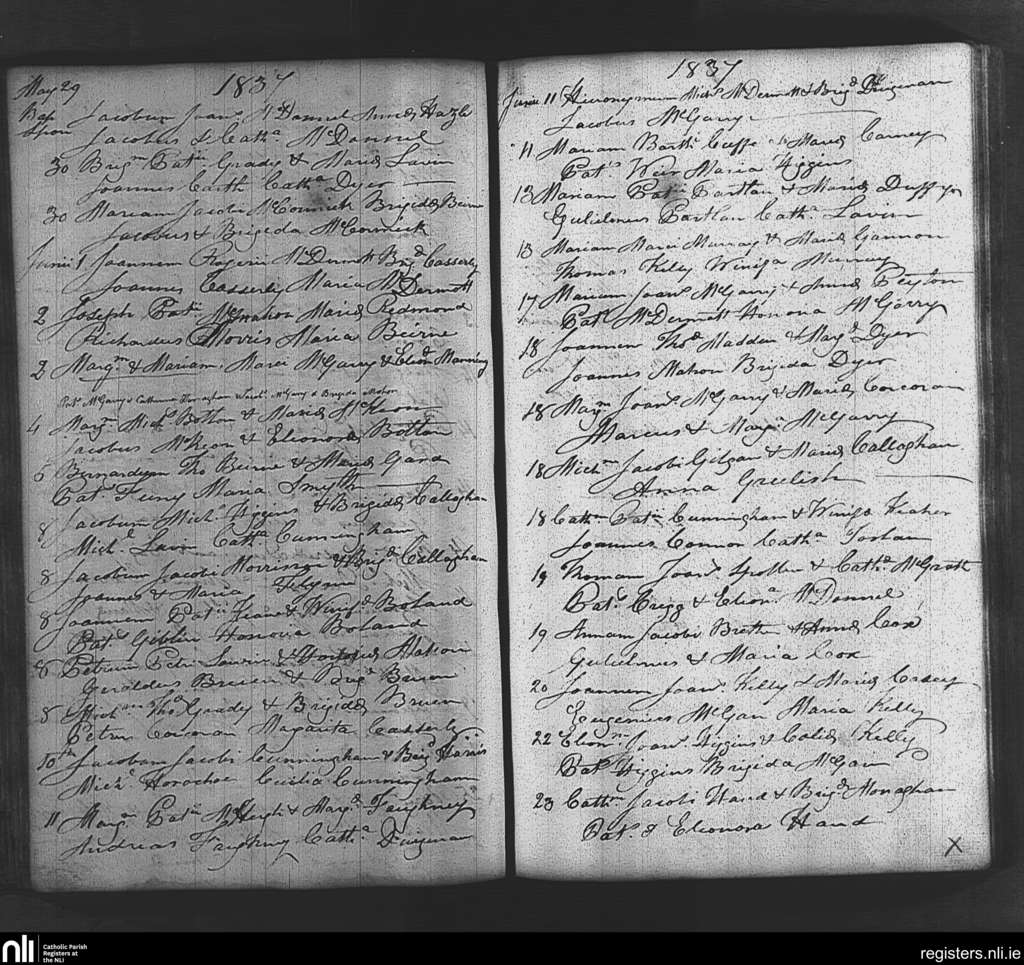 May 29 1837
Bap Jacobum Joans McDonnel Annæ Hazle
Spon Jacobus & Catha McDonnel
30 Brigm Patii Grady & Mariæ Lavin
Joannes Catha Dyer
30 Mariam Jacobi McCormick Brigidæ Beirn
Jacobus & Brigida McCormick
Junii 1 Joannem Rogerii McDermott Brigd Casserly
Joannes Casserly Maria McDermott
2 Joseph Patii McMahon Mariæ Redmond
Richardus Morris Maria Beirne
2 Margm & Mariam Marci McGarry & Elion Manning
Patk McGarry & Catherine McGarry & Brigida
4 Margm Michl Bolton & Mariæ McKeon
Jacobus McKeon & Elionora Bolton
6 Thos Beirne & Mariæ Gara
Patk Feeny Maria Smyth
8 Jacobum Michl Higgins & Brigidæ Callaghan
Michl Lavin Catha Cunningham
8 Jacobum Jacobi Morrison & Brigd Callaghan
Joannes & Maria Flynn
8 Joannem Patii & Winifd Boland
Patk Giblin Honoria Boland
8 Petrum Petri & Honoriæ Mahon
Geraldus Bruen & Brigd Bruen
8 Michm Thos Grady & Brigidæ Bruen
Petrus Corcoran Margarita Casserly
10th Jacobum Jacobi Cunningham & Brigd Harris
Michl Horachoe Cecilia Cunningham
11 Margm Patii McHugh & Margd Faughney
Andreas Faughny Catha Duigenan
1837
Junii 11 Hieronymum Michl McDermott & Brigd Duigenan
Jacobus McGarry
11 Mariam Barth Cuffe & Mariæ Carney
Patk Weir Maria Higgins
13 Mariam Patii Partlan & Mariæ Duffy
Gulielmus Partlan Catha Lavin
13 Mariam Marci Murray & Mariæ Gannon
Thomas Kelly Winifa Murray
17 Mariam Joans McGarry & Annæ Peyton
Patk McDermott Honora McGarry
18 Joannem Thos Madden & Margd Dyer
Joannes Mahon Brigida Dyer
18 Margm Joans McGarry & Mariæ Corcoran
Marcus & Margm McGarry
18 Michm Jacobi Gilgan & Mariæ Callaghan
Anna Greelish
18 Cathm Patii Cunningham & Winifa Keaher
Joannes Connor Catha
19 Thomam Joans & Catha McGrath
Patk Trigg & Eliona McDonnel
19 Annam Jacobi & Annæ Cox
Gulielmus & Maria Cox
20 Joannem Joans Kelly & Mariæ Casey
Eugenius McGan Maria Kelly
22 Elionm Joans Higgins & Kelly
Patk Higgins Brigida McGan
23 Cathm Jacobi Hand & Brigd Monaghan
Patk & Eleonora Hand
X
nli
Catholic Parish
Registers at
the NLI
registers.nli.ie